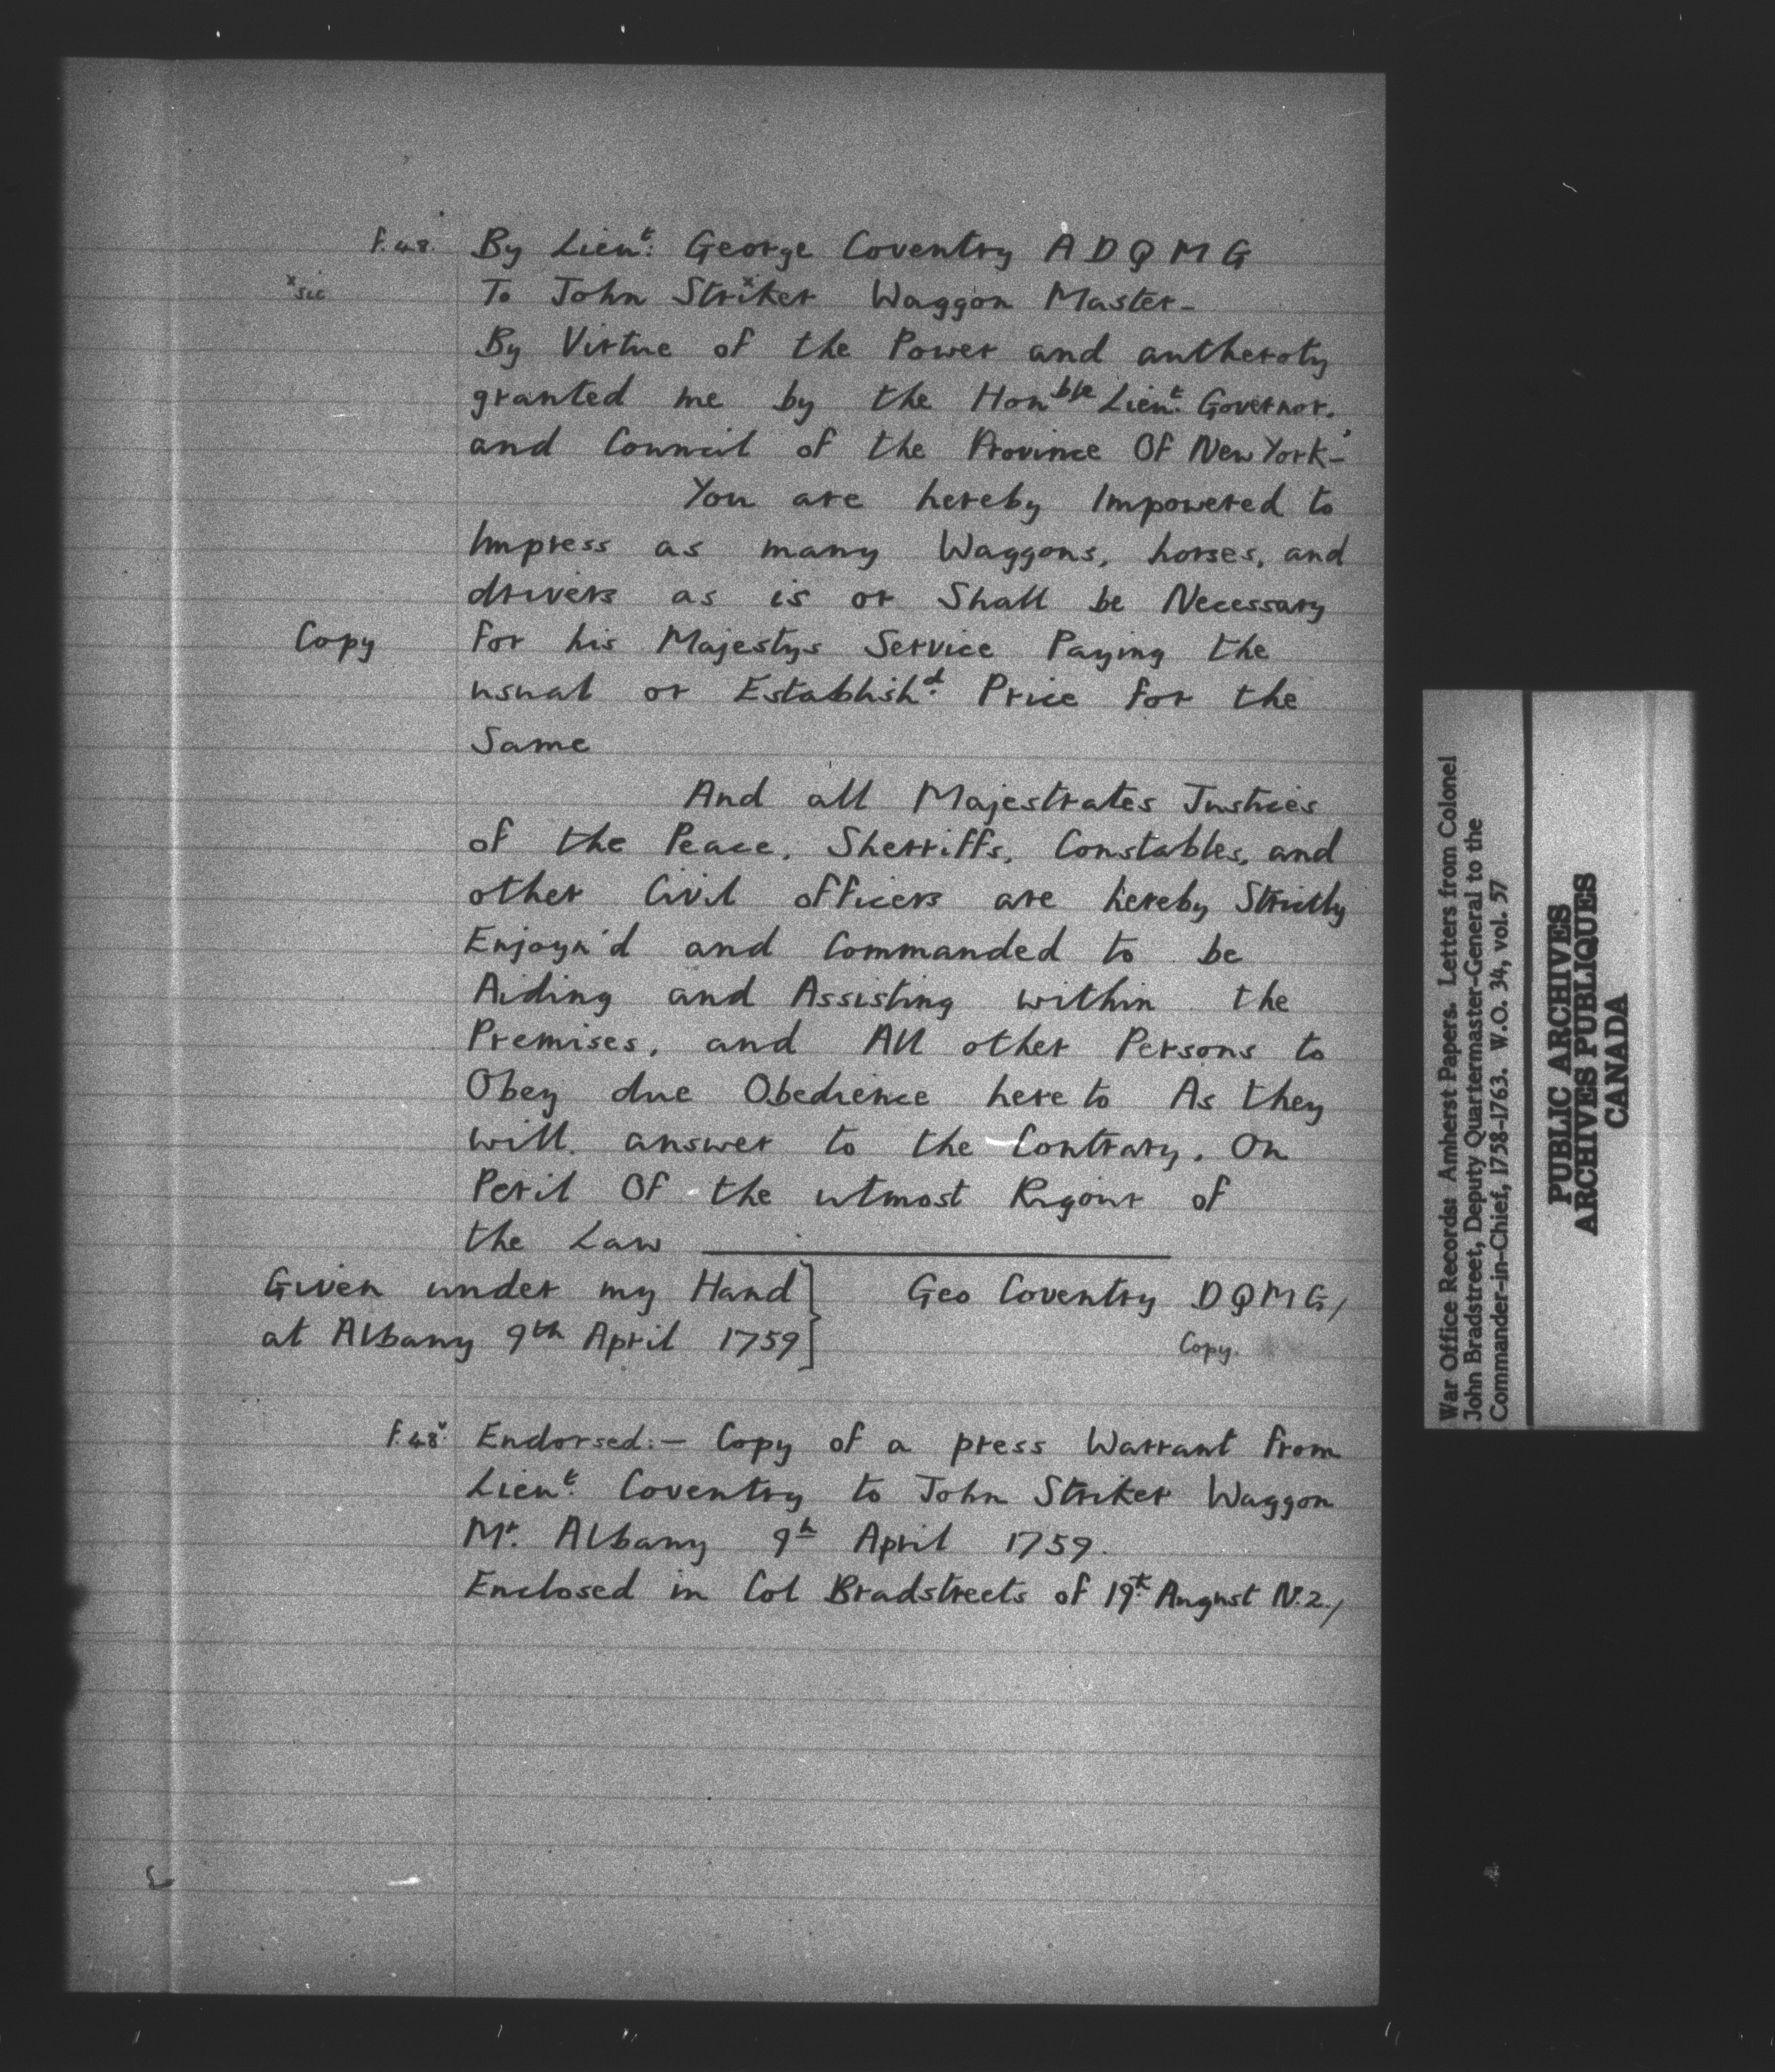 f.48. By Lieut: George Coventry A D Q M G
x sic To John Strixker Waggon Master-
By Virtue of the Power and autheroty
granted me by the Honble Lieut. Governor,
and Council of the Province Of New York-
You are hereby Impowered to
Impress as many Waggons, horses, and
drivers as is or Shall be Necessary
Copy for his Majestys Service Paying the
usual or Establish'd Price for the
Same
And all Majestrates Justices
of the Peace, Sherriffs, Constables, and
other Civil officers are hereby Strictly
Enjoyn'd and Commanded to be
Aiding and Assisting within the
Premises, and All other Persons to
Obey due Obedience here to As they
will answer to the Contrary, On
Peril Of the utmost Rigour of
the Law
Given under my Hand } Geo Coventry DQMG/
at Albany 9th April 1759 } Copy.
f.48v Endorsed:- Copy of a press Warrant from
Lieut. Coventry to John Striker Waggon
Mr. Albany 9th April 1759.
Enclosed in Col Bradstreets of 19th August N.2./
War Office Records: Amherst Papers. Letters from Colonel
John Bradstreet, Deputy Quartermaster-General to the
Commander-in-Chief, 1758-1763. W.O. 34, vol. 57
PUBLIC ARCHIVES
ARCHIVES PUBLIQUES
CANADA